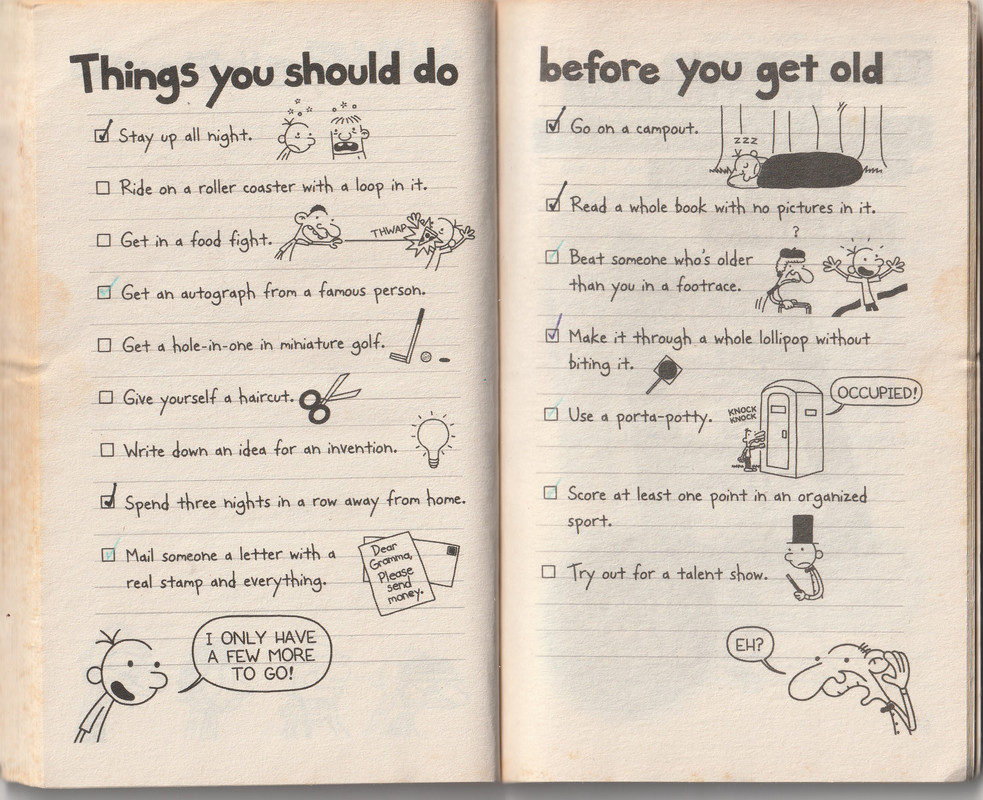 Things you should do
Stay up all night.
Ride on a roller coaster with a loop in it.
Get in a food fight.
THWAP
Get an autograph from a famous person.
Get a hole-in-one in miniature golf.
Give yourself a haircut.
Write down an idea for an invention.
Spend three nights in a row away from home.
Mail someone a letter with a
real stamp and everything.
Dear
Gramma,
Please
send
money.
I ONLY HAVE
A FEW MORE
TO GO!
before you get old
Go on a campout.
ZZZ
Read a whole book with no pictures in it.
?
Beat someone who's older
than you in a footrace.
Make it through a whole lollipop without
biting it.
OCCUPIED!
Use a porta-potty.
KNOCK
KNOCK
Score at least one point in an organized
sport.
Try out for a talent show.
EH?